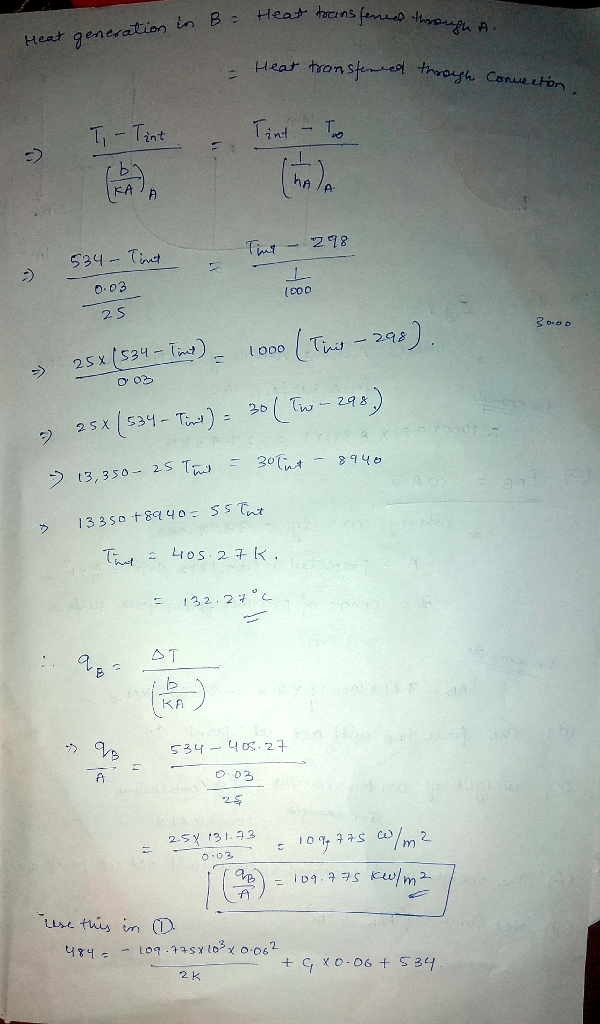 Heat generation in B = Heat transferred through A.
= Heat transferred through Convection.
=> T₁ - Tint / (b/KA)A = Tint - T∞ / (1/hA)A
=> 534 - Tint / (0.03/25) = Tint - 298 / (1/1000)
=> 25 x (534 - Tint) / 0.03 = 1000 (Tint - 298).
30.00
=> 25 x (534 - Tint) = 30 (Tin - 298)
=> 13,350 - 25 Tint = 30Tint - 8940
=> 13350 + 8940 = 55 Tint
Tint = 405.27 K.
= 132.27°C
∴ qB = ΔT / (b/KA)
=> qB/A = 534 - 405.27 / (0.03/25)
= 25 x 131.73 / 0.03 = 109,775 W/m²
(qB/A) = 109.775 KW/m²
use this in ①.
484 = - 109.775x10³ x 0.06² / 2K + C₁ x 0.06 + 534.